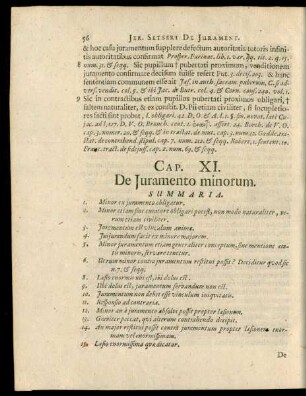 56 JER. SETSERI DE JURAMENT.
& hoc casu juramentum supplere defectum autoritatis tutoris infinitis
autoritatibus confirmat Prosper. Farinac. lib. 2. var. qq. tit. 2. q. 13.
8 num. 31. & seqq. Sic pupillum pubertati proximum, venditionem
juramento confirmare decisum fuisse refert Put. 3. decis. & hanc
sententiam communem esse ait Jas. in auth. sacram. puberum, C. si ad-
9 Sic in contractibus etiam pupillos pubertati proximos obligari, saltem
naturaliter, & ex consist. D. Pii etiam civiliter, si locupletiores
facti sint probat, l. obligari. 42. D. O. & A.
cap. 3. num. 20. & seqq. & in tractat. de nat. cap. 3. num.
tract. de fidejuss. cap. 2. num. 65. & seqq.
CAP. XI.
De Juramento minorum.
SUMMARIA.
1. Minor ex juramento obligatur.
2. Minor etiam sine curatore obligari potest, non modo naturaliter, verum
etiam civiliter.
3. Juramentum est vinculum animæ.
4. Jusjurandum facit ex minore majorem.
5. Minor juramentum etiam generaliter conceptum, sine mentione ætatis
minoris, servare tenetur.
6. Utrum minor contra juramentum restitui possit? Deciditur quod sic
n. 7. & seqq.
8. Læsio enormis ubi est, ibi dolus est.
9. Ubi dolus est, juramentum servandum non est.
10. Juramentum non debet esse vinculum iniquitatis.
11. Responsio ad contraria.
12. Minor an à juramento absolvi possit propter læsionem.
13. Graviter peccat, qui alterum contrahendo decipit.
14. An major restitui possit contra juramentum propter læsionem enormem
vel enormissimam.
15. Læsio enormissima quæ dicatur.
De